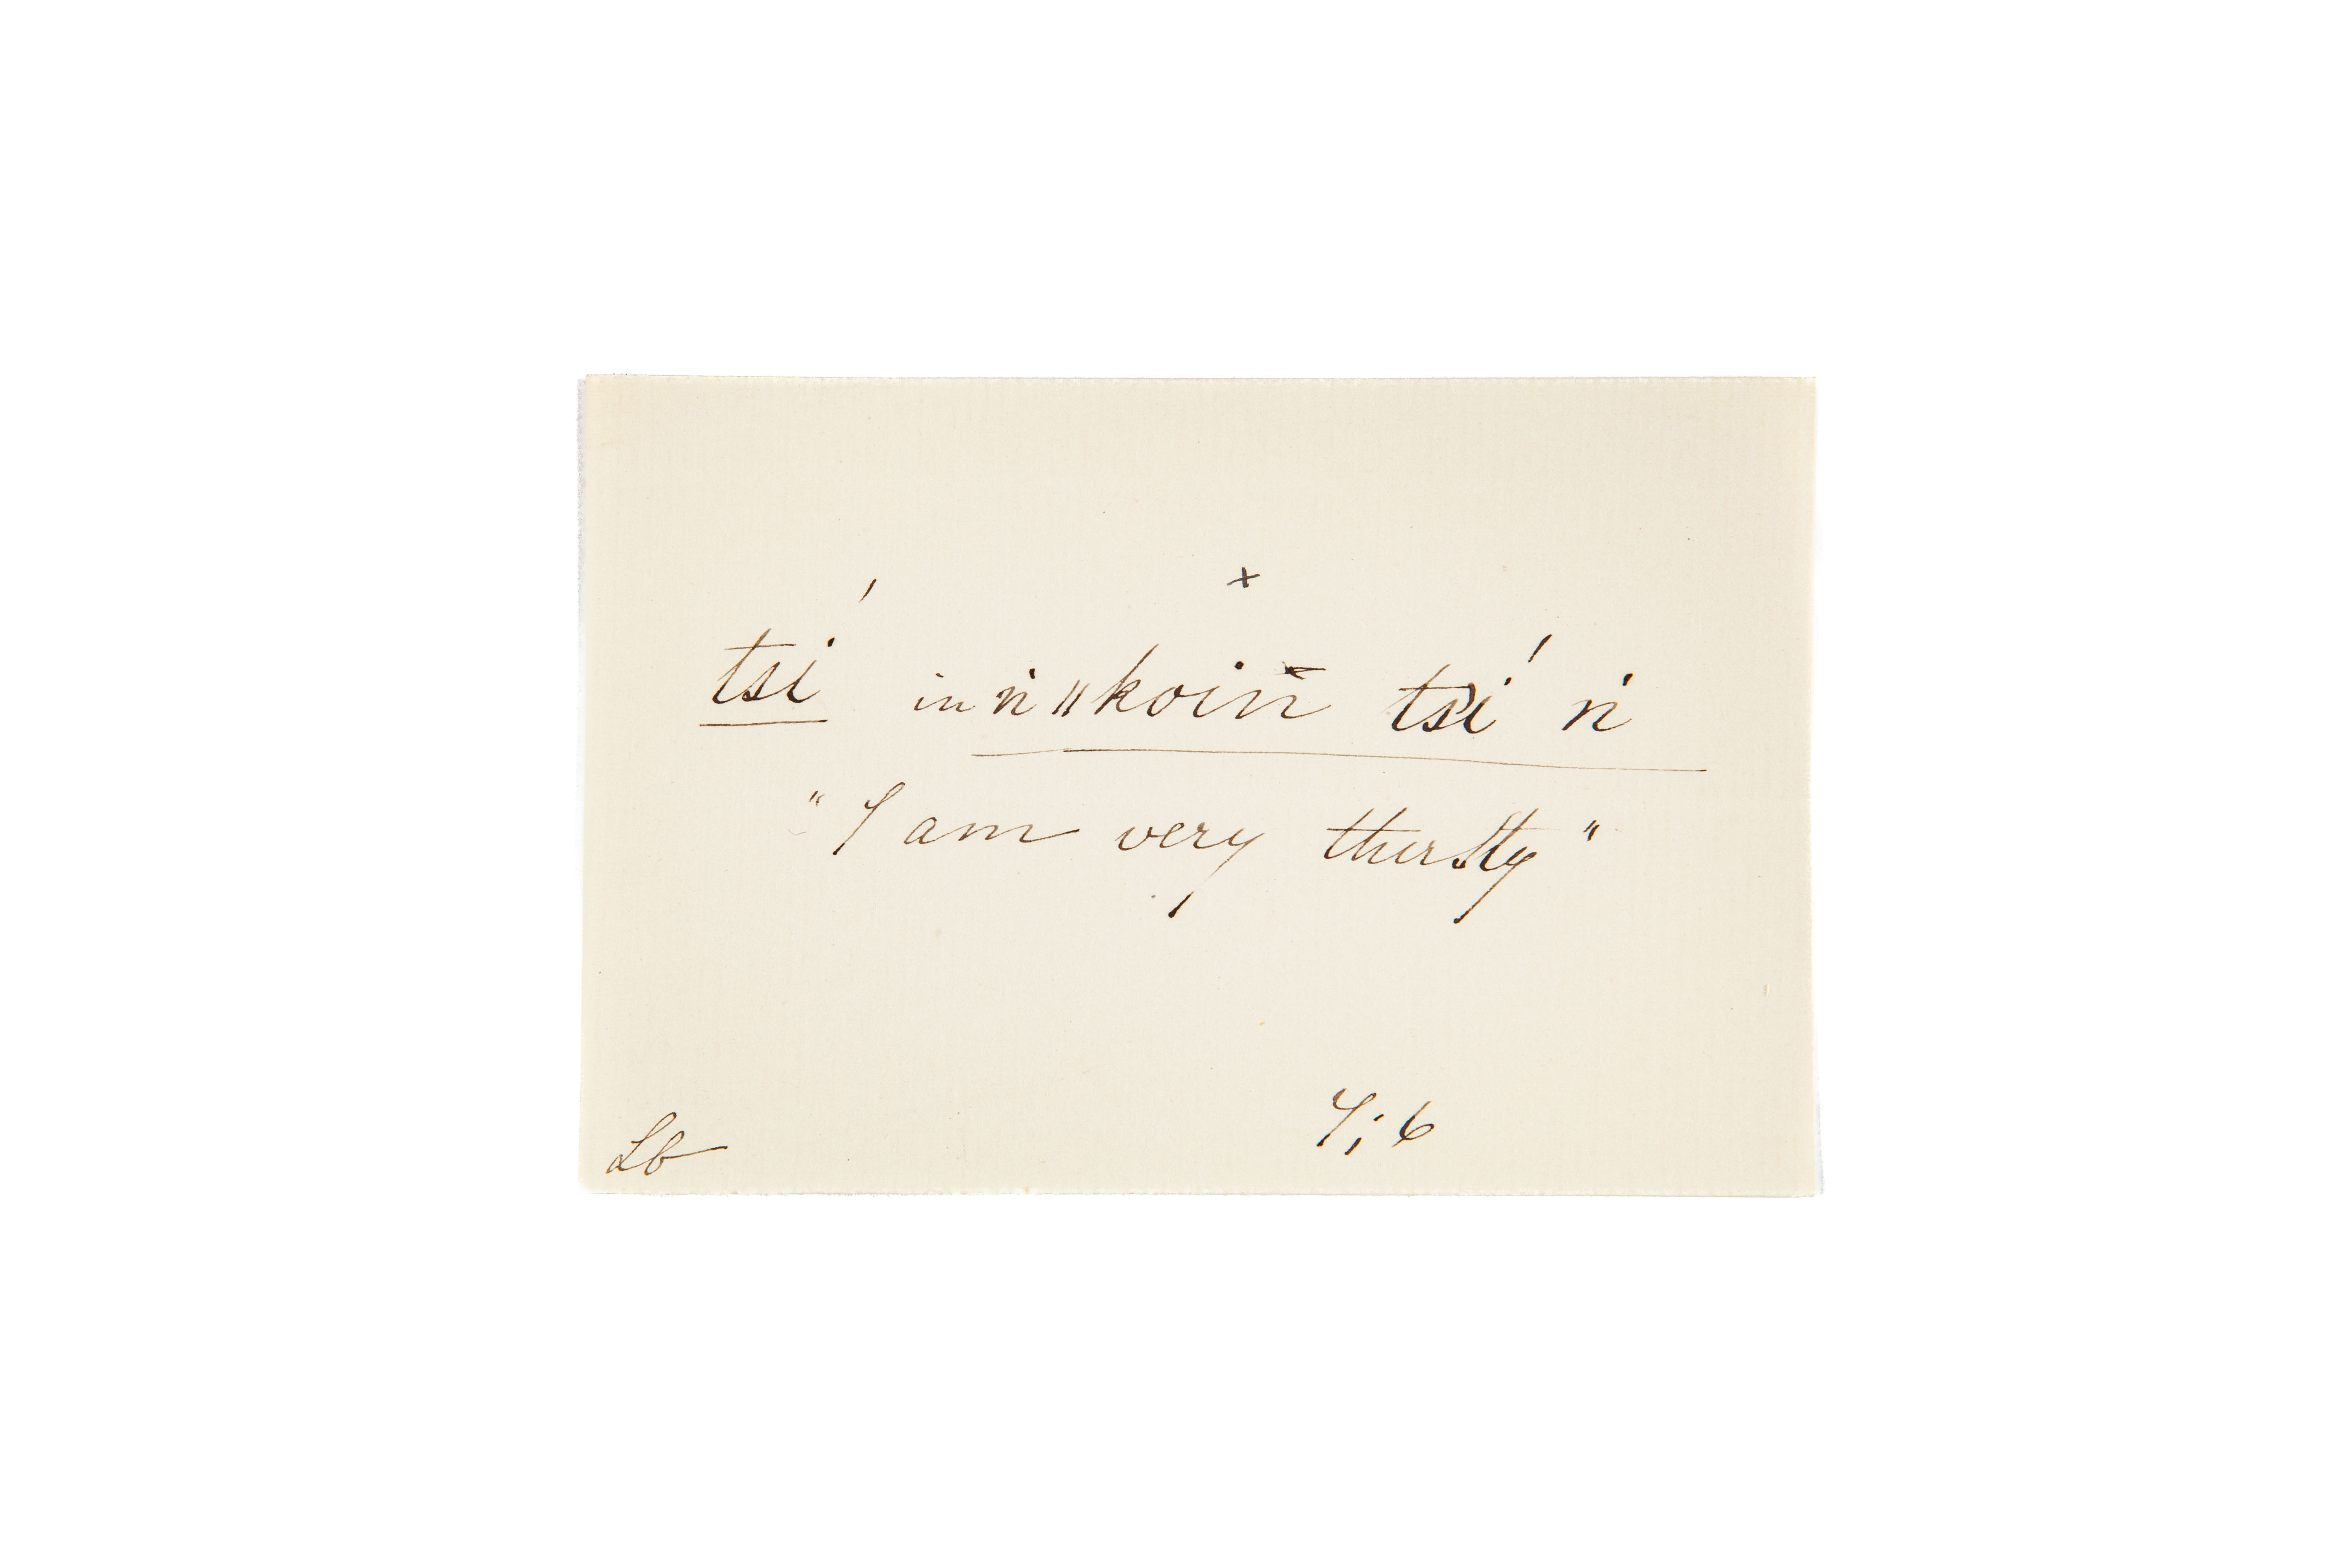 tsí in ṅ ǁkoiñ tsí ṅ
"I am very thirsty"
Lb